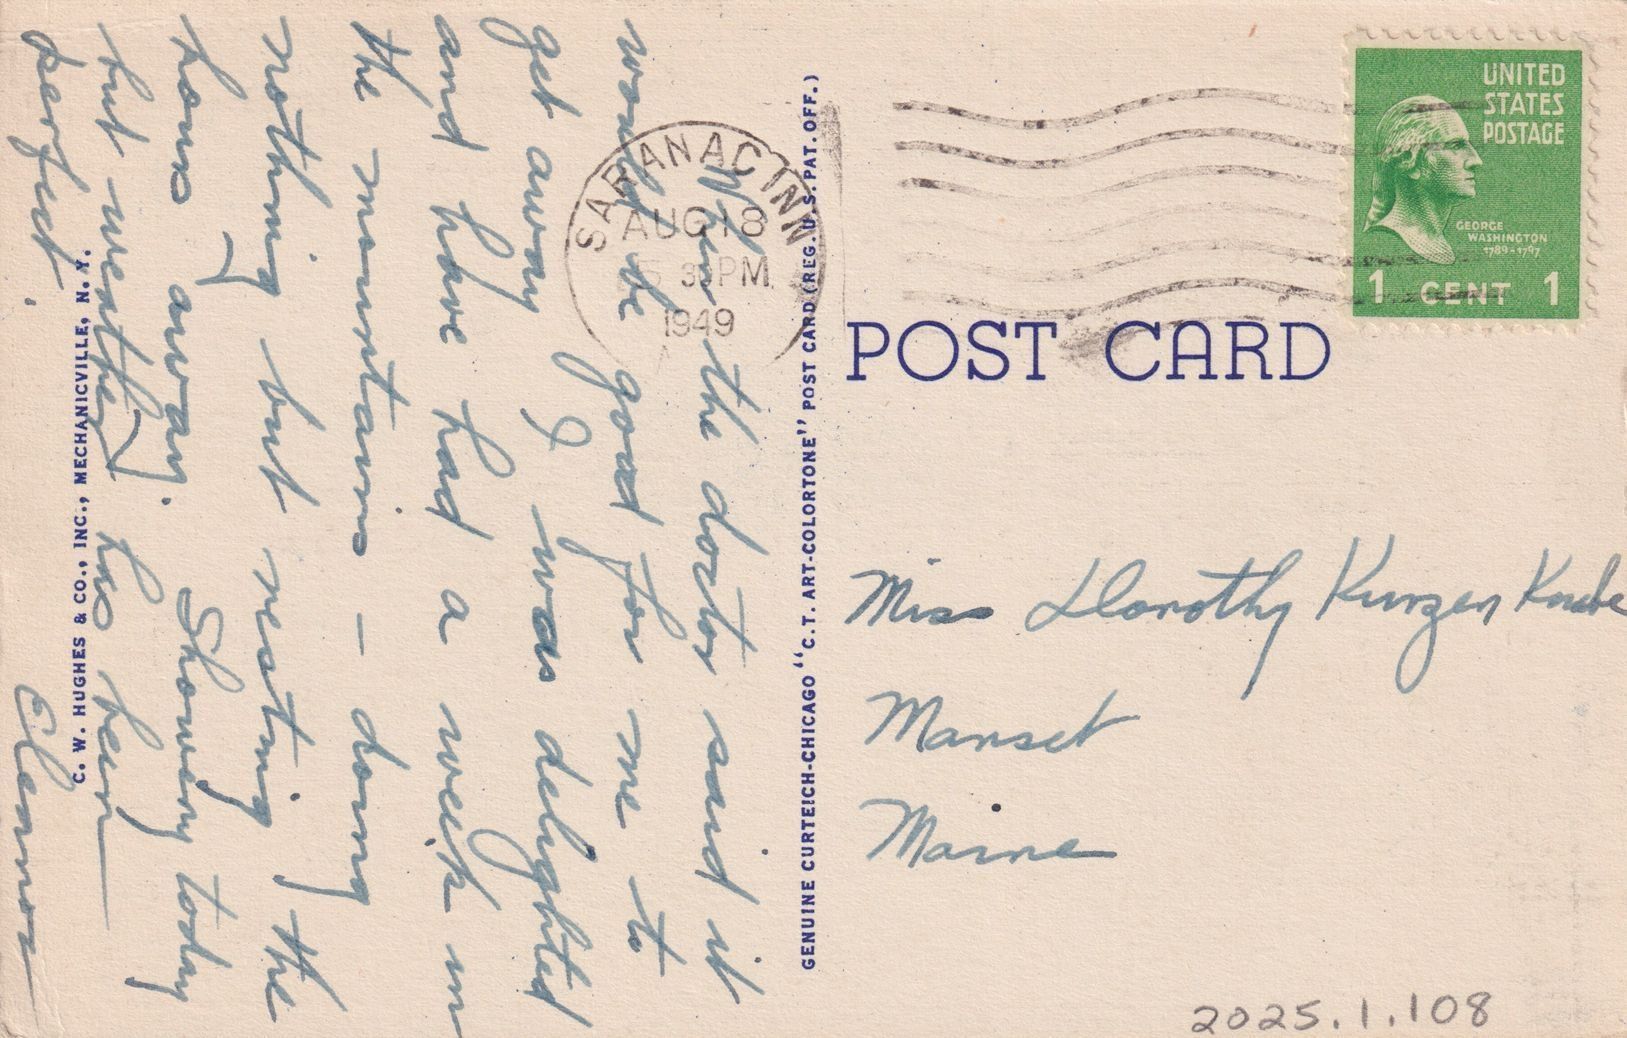 When the doctor said it
would be good for me to
get away I was delighted
and have had a week in
the mountains — doing
nothing but resting the
hours away. Showery today
but weather has been
perfect.
Eleanor
C. W. HUGHES & CO., INC., MECHANICVILLE, N. Y.
GENUINE CURTEICH-CHICAGO "C.T. ART-COLORTONE" POST CARD (REG. U.S. PAT. OFF.)
SARANAC INN
AUG 18
5 30 PM
1949
UNITED
STATES
POSTAGE
GEORGE
WASHINGTON
1789-1797
1 CENT 1
POST CARD
Miss Dorothy Kurzen Knabe
Manset
Maine
2025.1.108